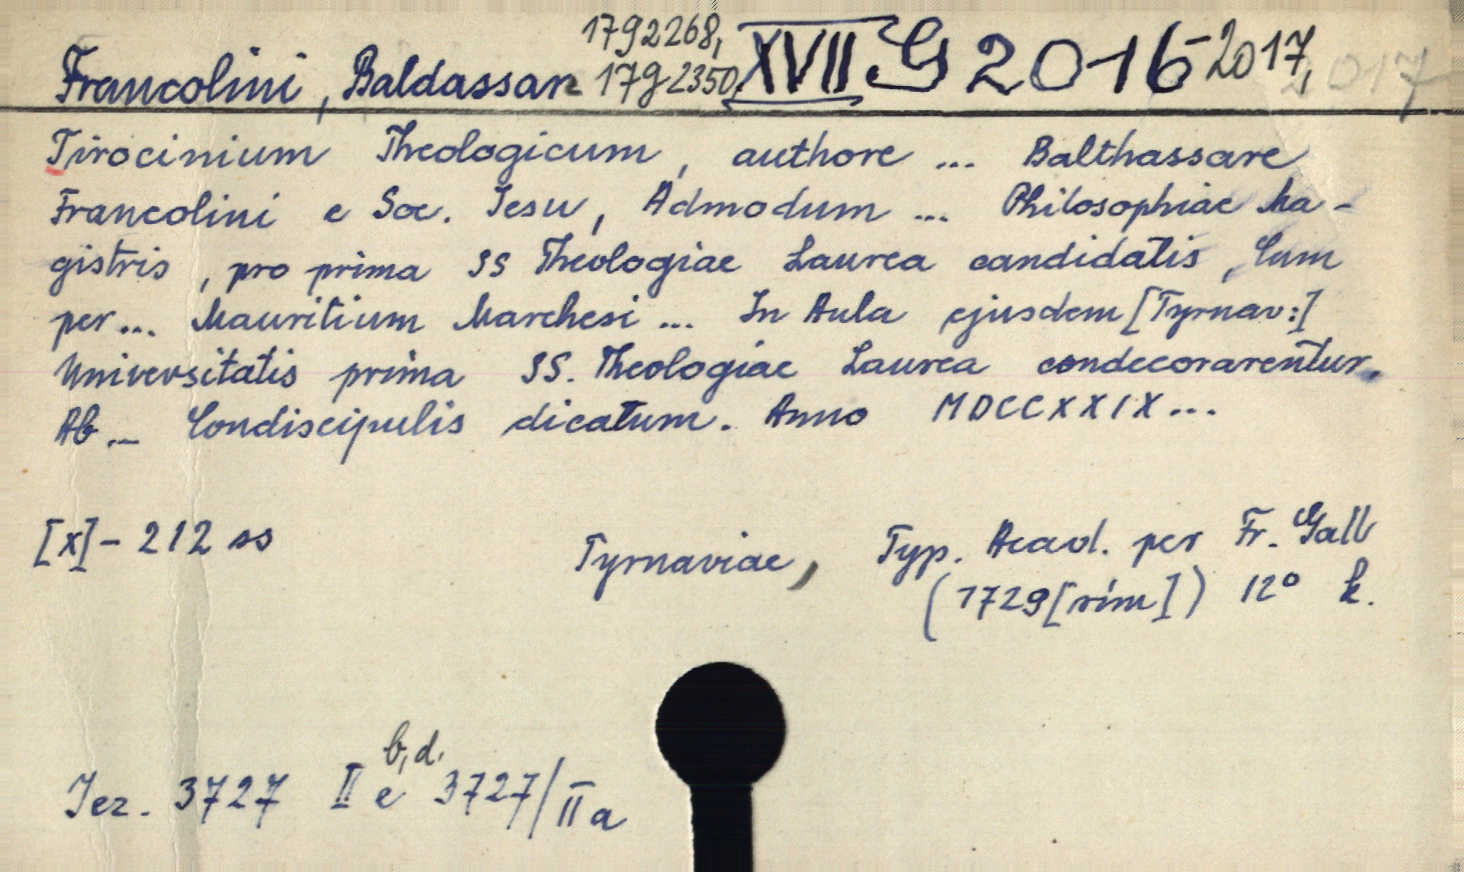 1792268,
Francolini, Baldassare 1792350, XVII G 2016 2017, 2017
Tirocinium Theologicum, authore ... Balthassare
Francolini e Soc. Iesu, Admodum ... Philosophiae Ma-
gistris, pro prima SS Theologiae Laurea candidatis, Cum
per ... Mauritium Marchesi ... In Aula ejusdem [Tyrnav:]
Universitatis prima SS. Theologiae Laurea condecorarentur.
Ab ... Condiscipulis dicatum. Anno MDCCXXIX...
[x]- 212 ss
Tyrnaviae, Typ. Acad. per Fr. Gall
(1729[rím]) 12° k.
b, d.
Jez. 3727 II e 3727/II a